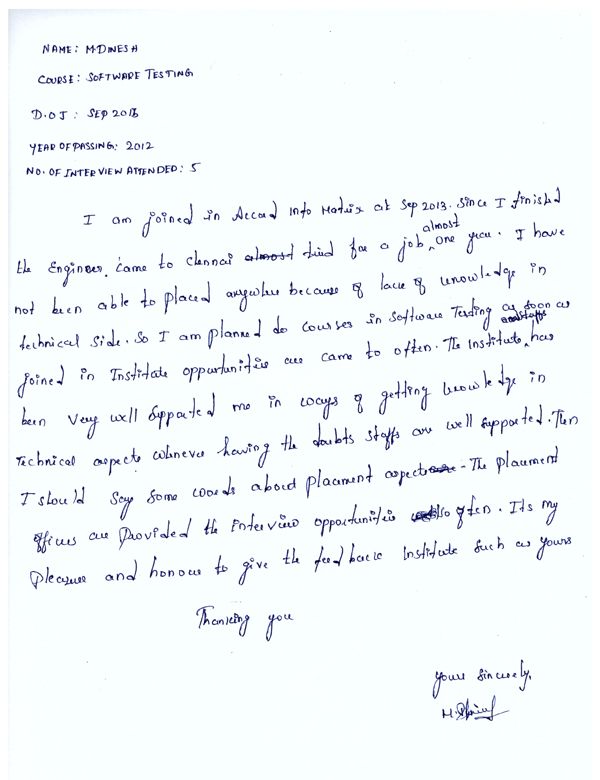 NAME: M.DINESH
COURSE: SOFTWARE TESTING
D.O.J : SEP 2013
YEAR OF PASSING: 2012
NO. OF INTERVIEW ATTENDED: 5
I am joined in Accord Info Matrix at Sep 2013. Since I finished
the Engineer. Came to Chennai almost tried for a job almost one year. I have
not been able to placed anywhere because of lack of knowledge in
technical side. So I am planned do courses in Software Testing as soon as
joined in Institute opportunities are came to often. The Institute staffs has
been very well supported me in ways of getting knowledge in
technical aspects whenever having the doubts staffs are well supported. Then
I should say some words about placement aspect - The placement
officers are provided the interview opportunities so often. Its my
pleasure and honour to give the feed back Institute such as yours
Thanking you
yours sincerely,